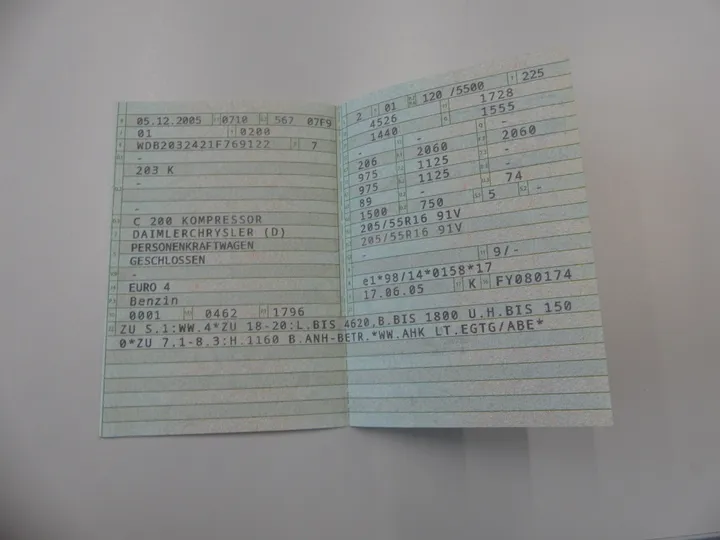 05.12.2005 0710 567 07F9
01 0200
WDB2032421F769122 7
-
203 K
-
-
C 200 KOMPRESSOR
DAIMLERCHRYSLER (D)
PERSONENKRAFTWAGEN
GESCHLOSSEN
-
EURO 4
Benzin
0001 0462 1796
2 01 120 /5500 225
4526 1728
1440 1555
- -
206 2060 2060
975 1125
975 1125
89 - 74
1500 750 5 -
205/55R16 91V
205/55R16 91V
- 9/-
e1*98/14*0158*17
17.06.05 K FY080174
ZU 5.1:WW.4*ZU 18-20:L.BIS 4620,B.BIS 1800 U.H.BIS 150
0*ZU 7.1-8.3:H.1160 B.ANH-BETR.*WW.AHK LT.EGTG/ABE*